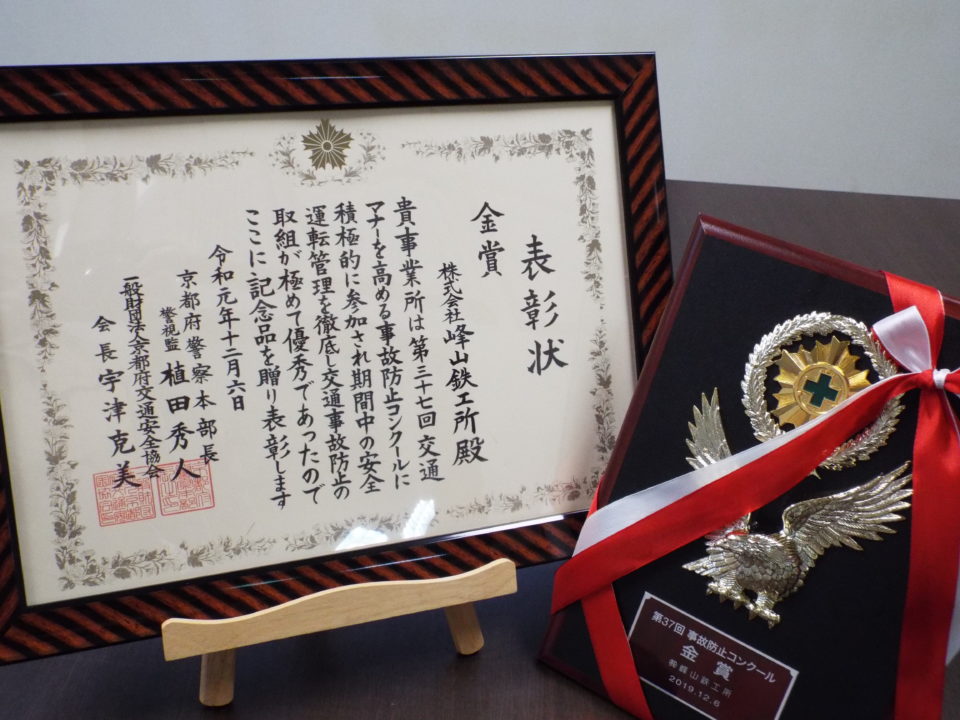 表彰状
金賞
株式会社 峰山鉄工所殿
貴事業所は第三十七回 交通
マナーを高める事故防止コンクールに
積極的に参加され期間中の安全
運転管理を徹底し交通事故防止の
取組が極めて優秀であったので
ここに記念品を贈り表彰します
令和元年十二月六日
京都府警察本部長
警視監 植田秀人
一般財団法人京都府交通安全協会
会長 宇津克美
第37回 事故防止コンクール
金賞
㈱峰山鉄工所
2019.12.6